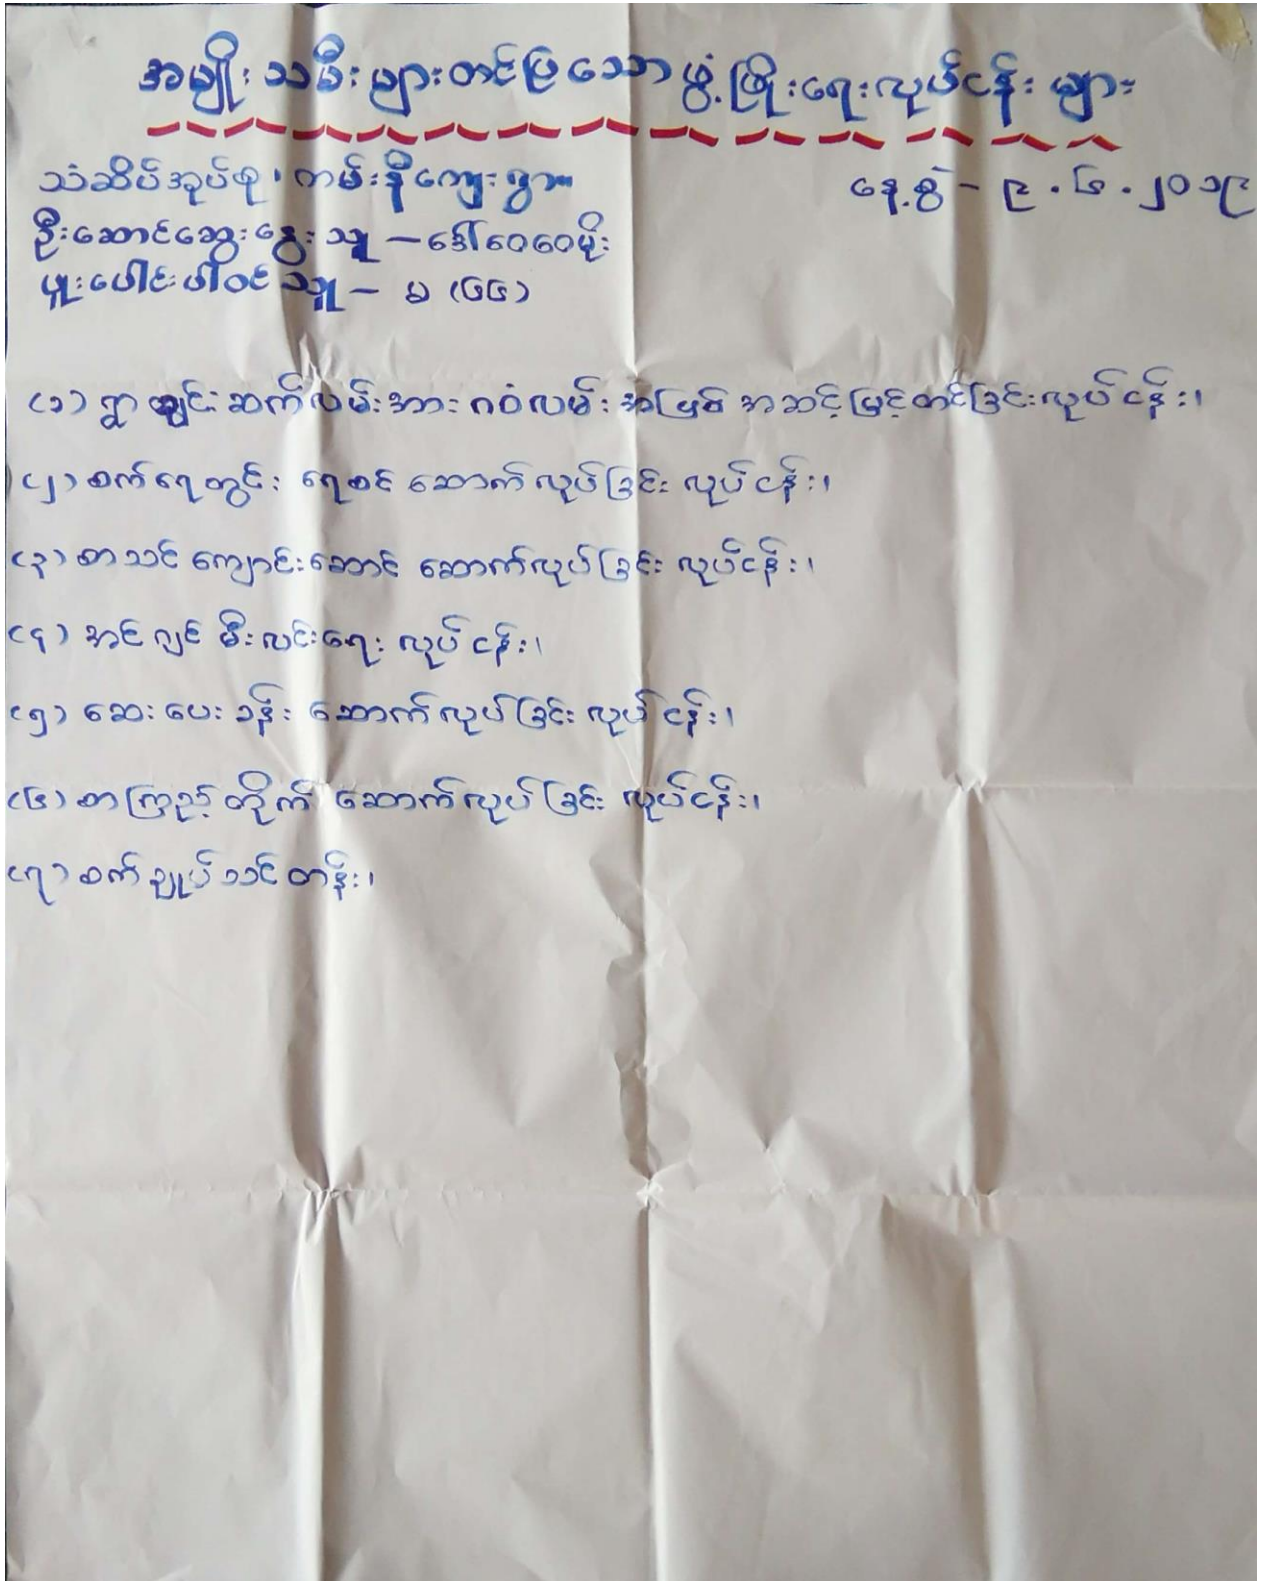 အမျိုးသမီးများတင်ပြသောဖွံ့ဖြိုးရေးလုပ်ငန်းများ
သံဆိပ်အုပ်စု၊ ကမ်းနီကျေးရွာ
နေ့စွဲ - ၉.၆.၂၀၁၉
ဦးဆောင်ဆွေးနွေးသူ - ဒေါ်ဝေဝေမိုး
ပူးပေါင်းပါဝင်သူ - မ (၆၆)
(၁) ရွာချင်းဆက်လမ်းအား ဂဝံလမ်းအဖြစ် အဆင့်မြှင့်တင်ခြင်းလုပ်ငန်း၊
(၂) စက်ရေတွင်း ရေစင် ဆောက်လုပ်ခြင်း လုပ်ငန်း၊
(၃) စာသင်ကျောင်းဆောင် ဆောက်လုပ်ခြင်း လုပ်ငန်း၊
(၄) အင်ဂျင် မီးလင်းရေး လုပ်ငန်း၊
(၅) ဆေးပေးခန်း ဆောက်လုပ်ခြင်း လုပ်ငန်း၊
(၆) စာကြည့်တိုက် ဆောက်လုပ်ခြင်း လုပ်ငန်း၊
(၇) စက်ချုပ်သင်တန်း၊